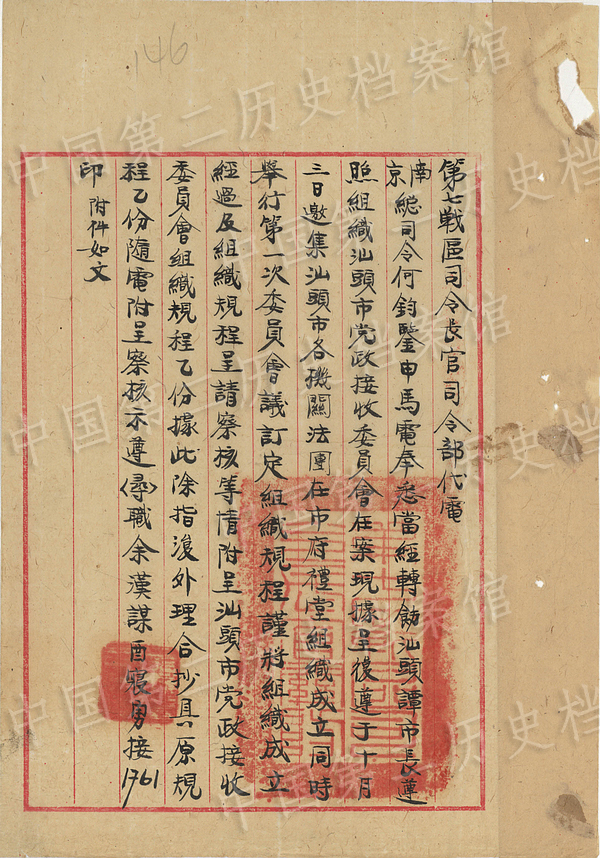 146
第七戰區司令長官司令部代電
南京總司令何鈞鑒申馬電奉悉當經轉飭汕頭譚市長遵
照組織汕頭市党政接收委員會在案現據呈復遵于十月
三日邀集汕頭市各機關法團在市府禮堂組織成立同時
舉行第一次委員會議訂定組織規程謹將組織成立
經過及組織規程呈請察核等情附呈汕頭市党政接收
委員會組織規程乙份據此除指復外理合抄具原規
程乙份隨電附呈察核示遵(尋)職余漢謀酉寝勇接1761
印 附件如文
中国第二历史档案馆